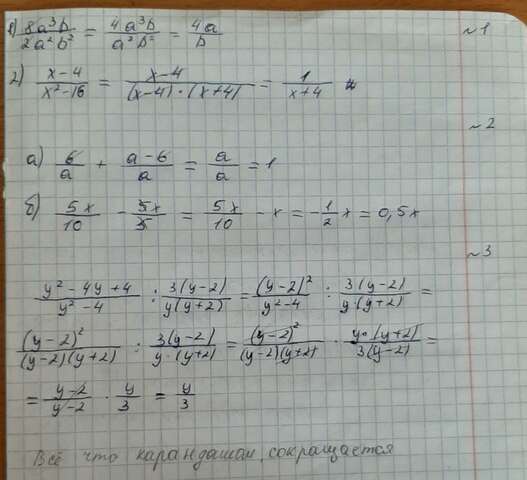 1) 8a³b/2a²b² = 4a³b/a²b² = 4a/b
~1
2) x-4/x²-16 = x-4/(x-4)·(x+4) = 1/x+4
~2
а) 6/a + a-6/a = a/a = 1
б) 5x/10 - 5x/5 = 5x/10 - x = -1/2x = 0,5x
~3
y²-4y+4/y²-4 : 3(y-2)/y(y+2) = (y-2)²/y²-4 : 3(y-2)/y·(y+2) =
(y-2)²/(y-2)(y+2) : 3(y-2)/y·(y+2) = (y-2)²/(y-2)(y+2) · y·(y+2)/3(y-2) =
= y-2/y-2 · y/3 = y/3
Всё что карандашом, сокращается